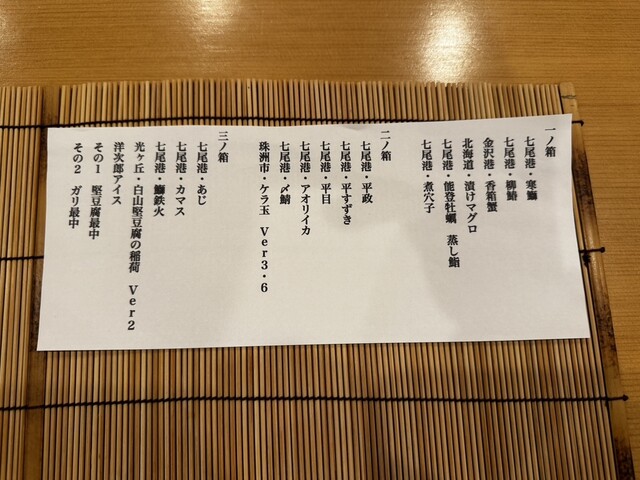 一ノ箱
七尾港・寒鰤
七尾港・柳鰆
金沢港・香箱蟹
北海道・漬けマグロ
七尾港・能登牡蠣　蒸し鮨
七尾港・煮穴子
二ノ箱
七尾港・平政
七尾港・平すずき
七尾港・平目
七尾港・アオリイカ
七尾港・〆鯖
珠洲市・ケラ玉　Ｖｅｒ３・６
三ノ箱
七尾港・あじ
七尾港・カマス
七尾港・鰤鉄火
光ヶ丘・白山堅豆腐の稲荷　Ｖｅｒ２
洋次郎アイス
その１　堅豆腐最中
その２　ガリ最中